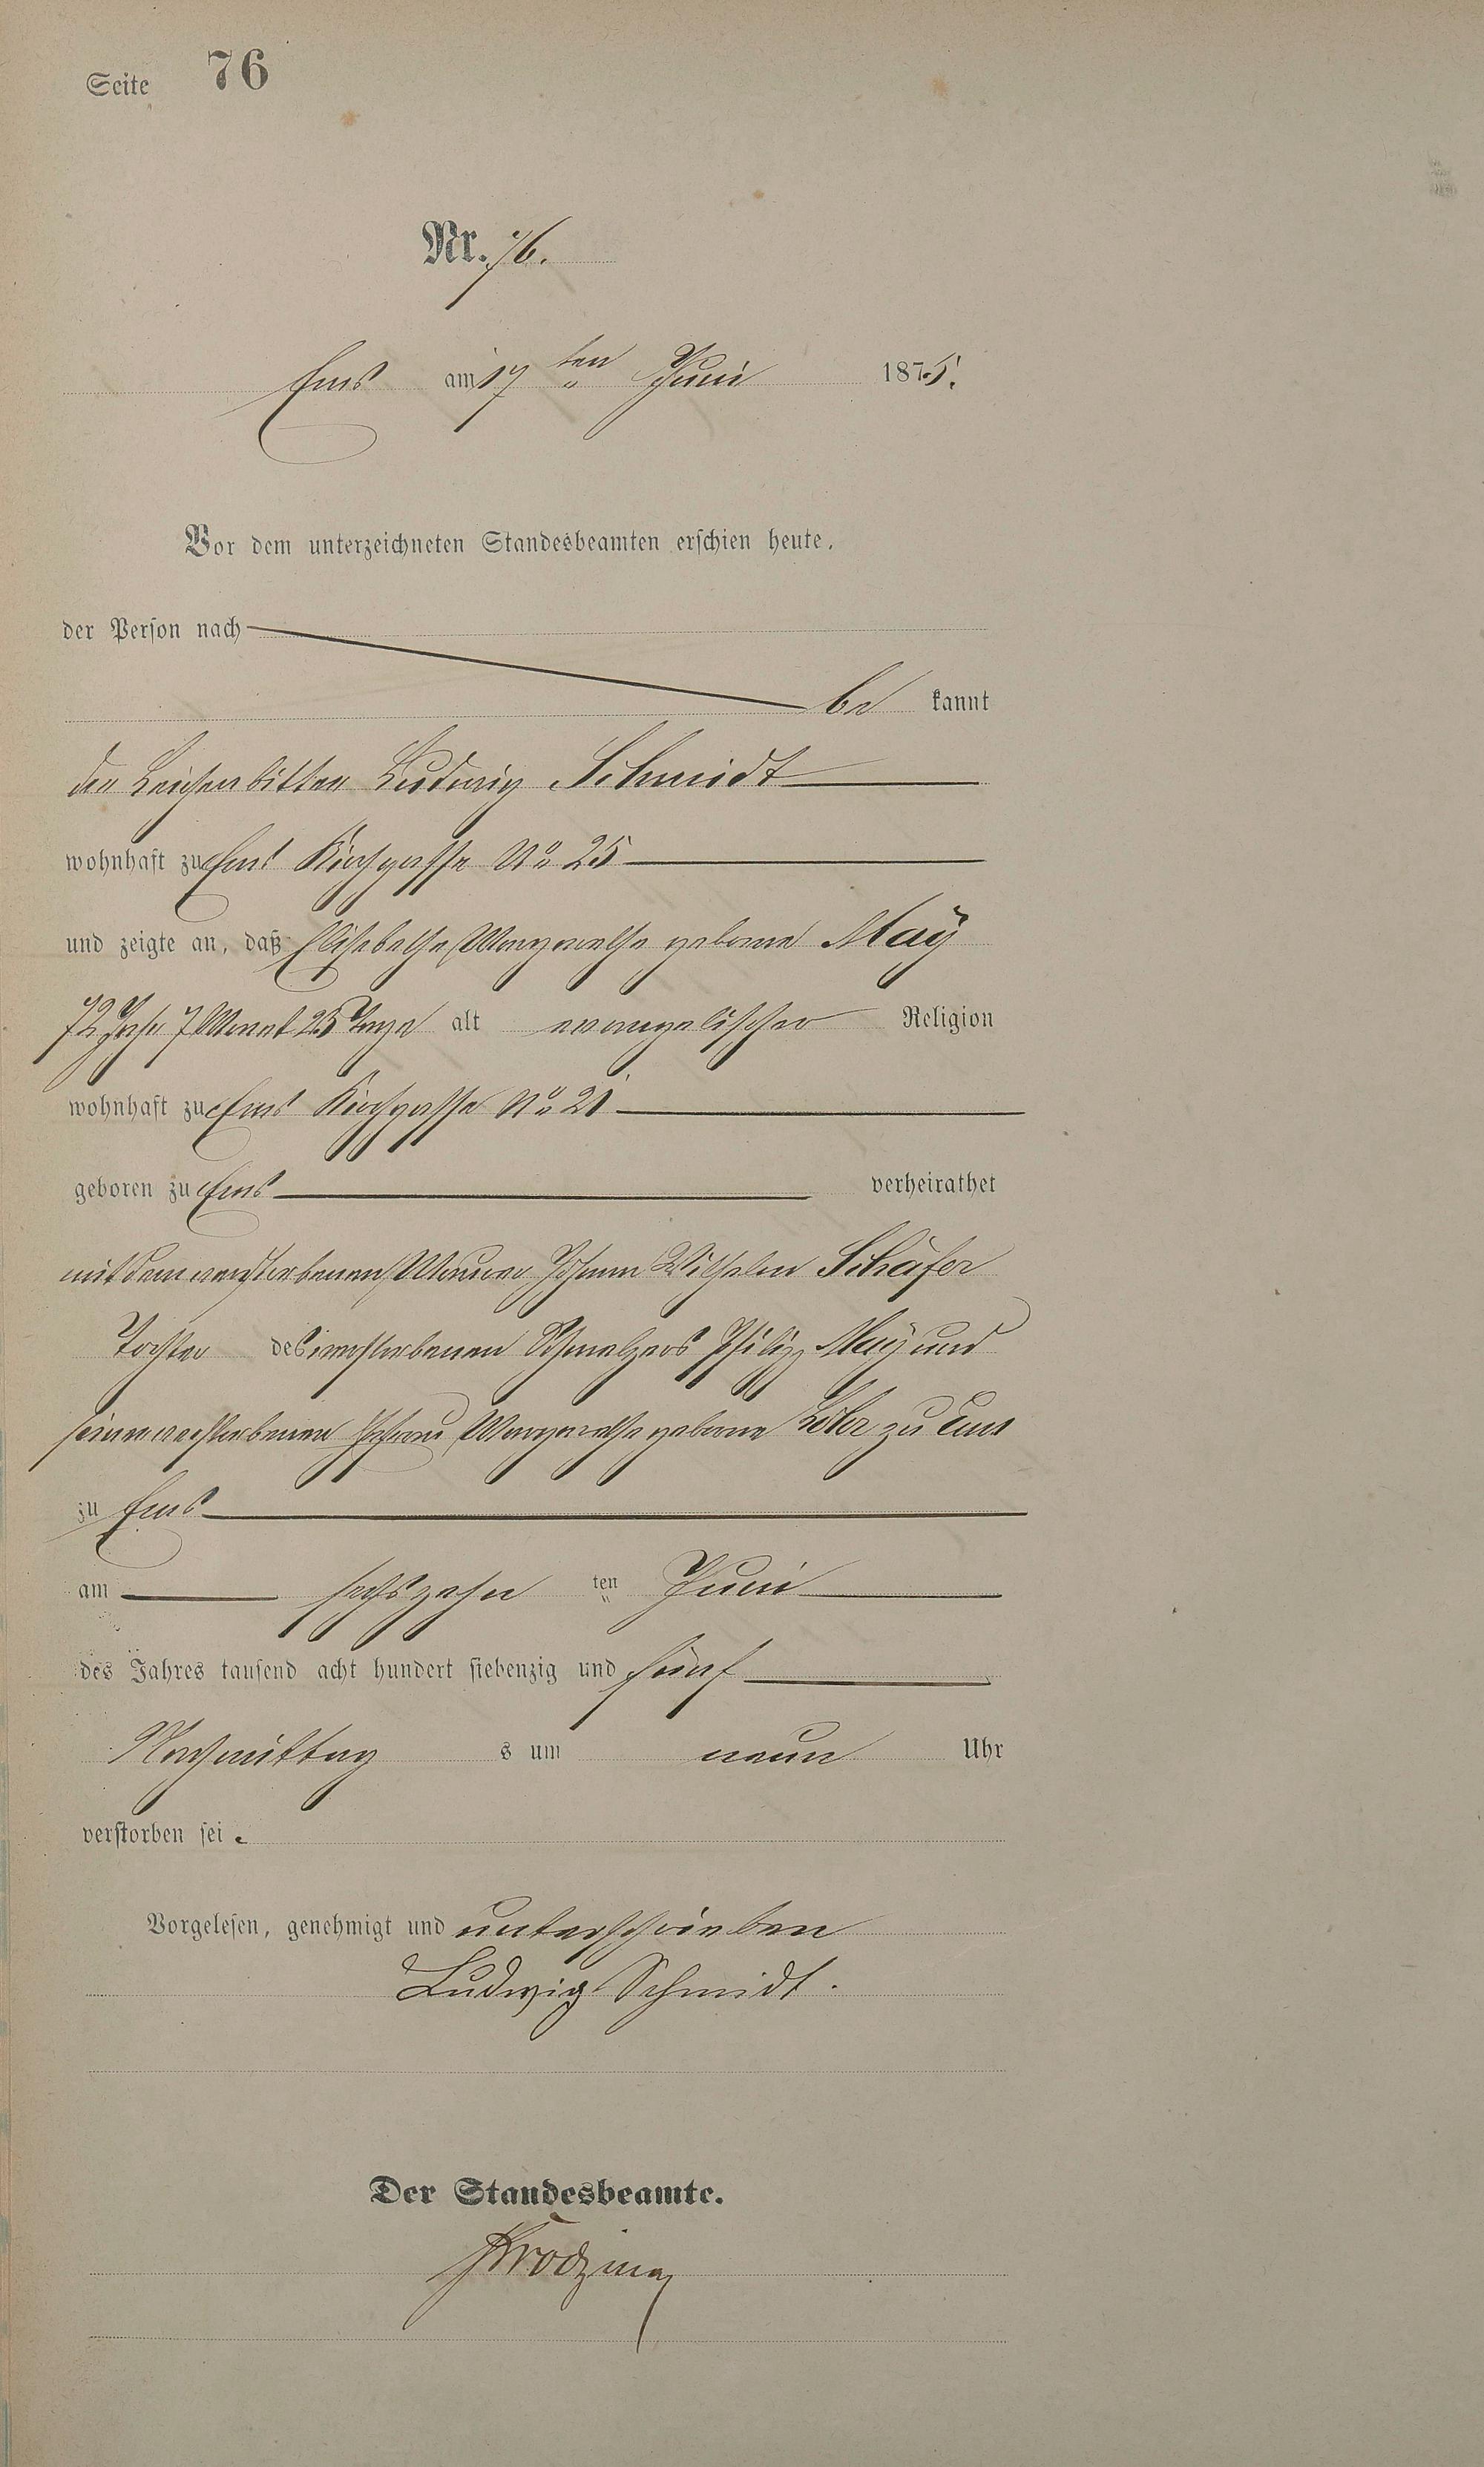 Seite 76
Nr. 76.
Ems am 17 ten Juni 1875.
Vor dem unterzeichneten Standesbeamten erschien heute,
der Person nach
be kannt
der Leichenbitter Ludwig Schmidt
wohnhaft zu Ems Kirchgasse No 25
und zeigte an, daß Elisabetha Margaretha geborne Maÿ
72 Jahr 7 Monat 25 Tage alt evangelischer Religion
wohnhaft zu Ems Kirchgasse No 21
geboren zu Ems verheirathet
mit dem verstorbenen Maurer Johann Wilhelm Schäfer
Tochter des verstorbenen Schmelzers Philipp Maÿ und
seiner verstorbenen Ehefrau Margaretha geborne zu Ems
zu Ems
am sechszehn ten Juni
des Jahres tausend acht hundert siebenzig und fünf
Nachmittag s um neun Uhr
verstorben sei.
Vorgelesen, genehmigt und unterschrieben
Ludwig Schmidt.
Der Standesbeamte.